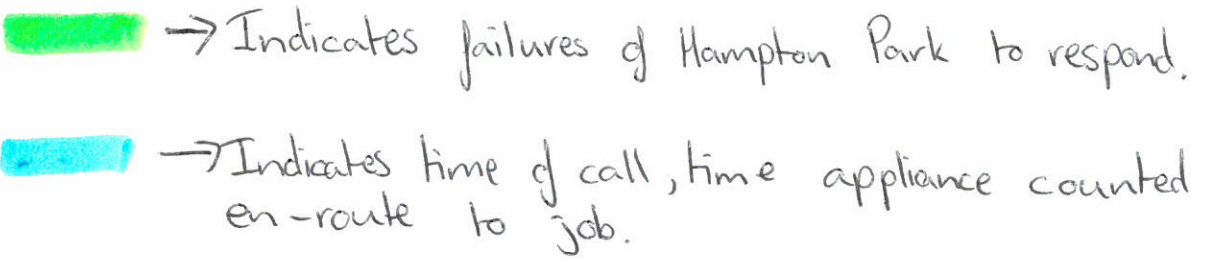 → Indicates failures of Hampton Park to respond.
→ Indicates time of call, time appliance counted
en-route to job.